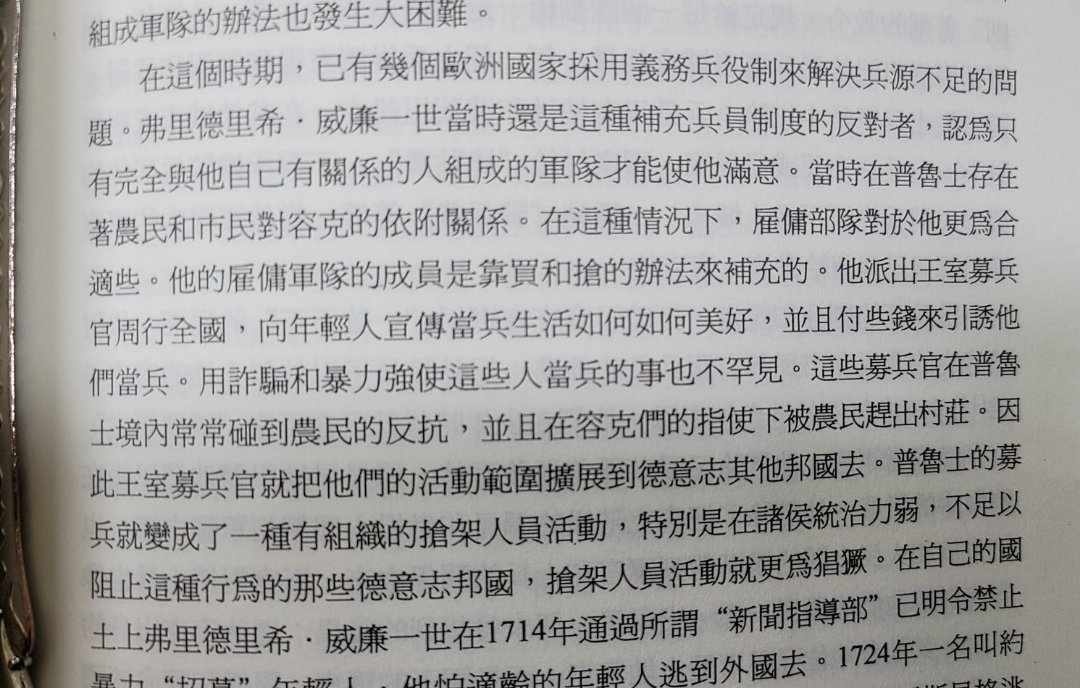 組成軍隊的辦法也發生大困難。
在這個時期，已有幾個歐洲國家採用義務兵役制來解決兵源不足的問
題。弗里德里希·威廉一世當時還是這種補充兵員制度的反對者，認爲只
有完全與他自己有關係的人組成的軍隊才能使他滿意。當時在普魯士存在
著農民和市民對容克的依附關係。在這種情況下，雇傭部隊對於他更爲合
適些。他的雇傭軍隊的成員是靠買和搶的辦法來補充的。他派出王室募兵
官周行全國，向年輕人宣傳當兵生活如何如何美好，並且付些錢來引誘他
們當兵。用詐騙和暴力強使這些人當兵的事也不罕見。這些募兵官在普魯
士境內常常碰到農民的反抗，並且在容克們的指使下被農民趕出村莊。因
此王室募兵官就把他們的活動範圍擴展到德意志其他邦國去。普魯士的募
兵就變成了一種有組織的搶架人員活動，特別是在諸侯統治力弱，不足以
阻止這種行爲的那些德意志邦國，搶架人員活動就更爲猖獗。在自己的國
土上弗里德里希·威廉一世在1714年通過所謂“新聞指導部”已明令禁止
暴力“招募”年輕人，他怕適齡的年輕人逃到外國去。1724年一名叫約